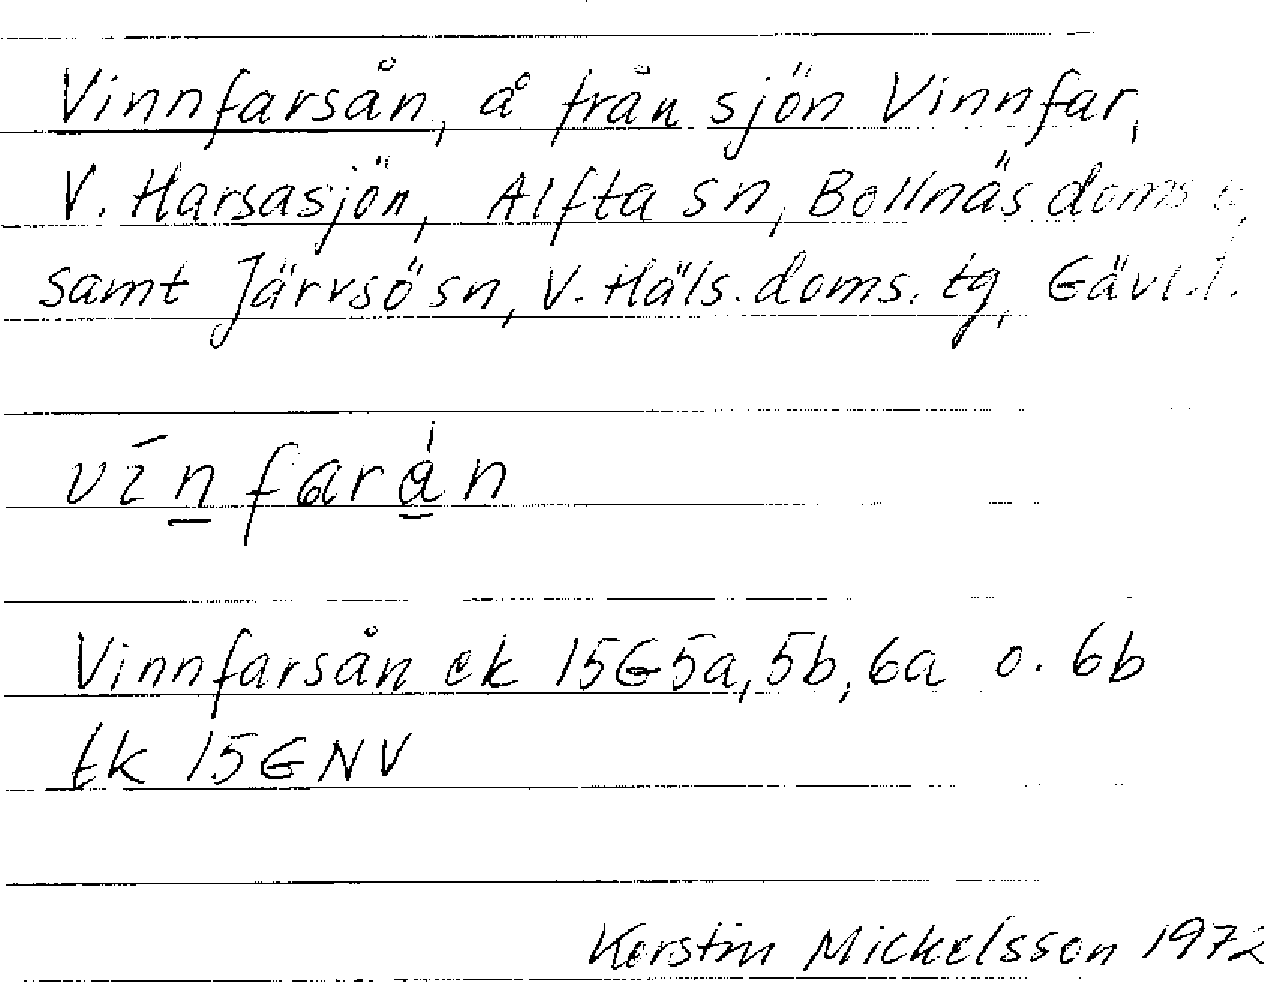 Vinnfarsån, å från sjön Vinnfar,
V. Harsasjön, Alfta sn, Bollnäs doms
samt Järvsö sn, V. Häls. doms. tg, Gävl.l.
vīn̲farǻ̲n
Vinnfarsån ek 15G5a, 5b, 6a o. 6b
tk 15GNV
Kerstin Mickelsson 1972